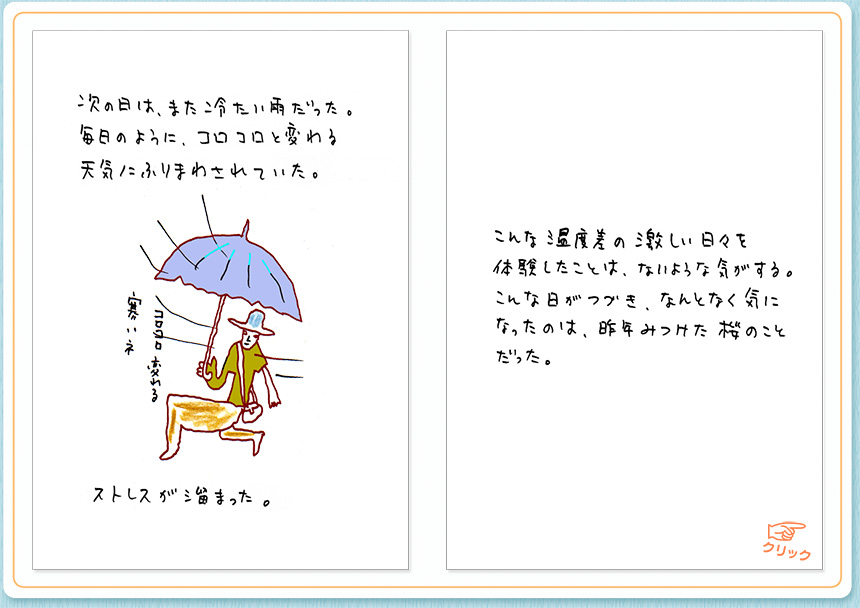 次の日は、また冷たい雨だった。
毎日のように、コロコロと変わる
天気にふりまわされていた。
寒いネ
コロコロ変わる
ストレスが溜まった。
こんな温度差の激しい日々を
体験したことは、ないような気がする。
こんな日がつづき、なんとなく気に
なったのは、昨年みつけた桜のこと
だった。
クリック